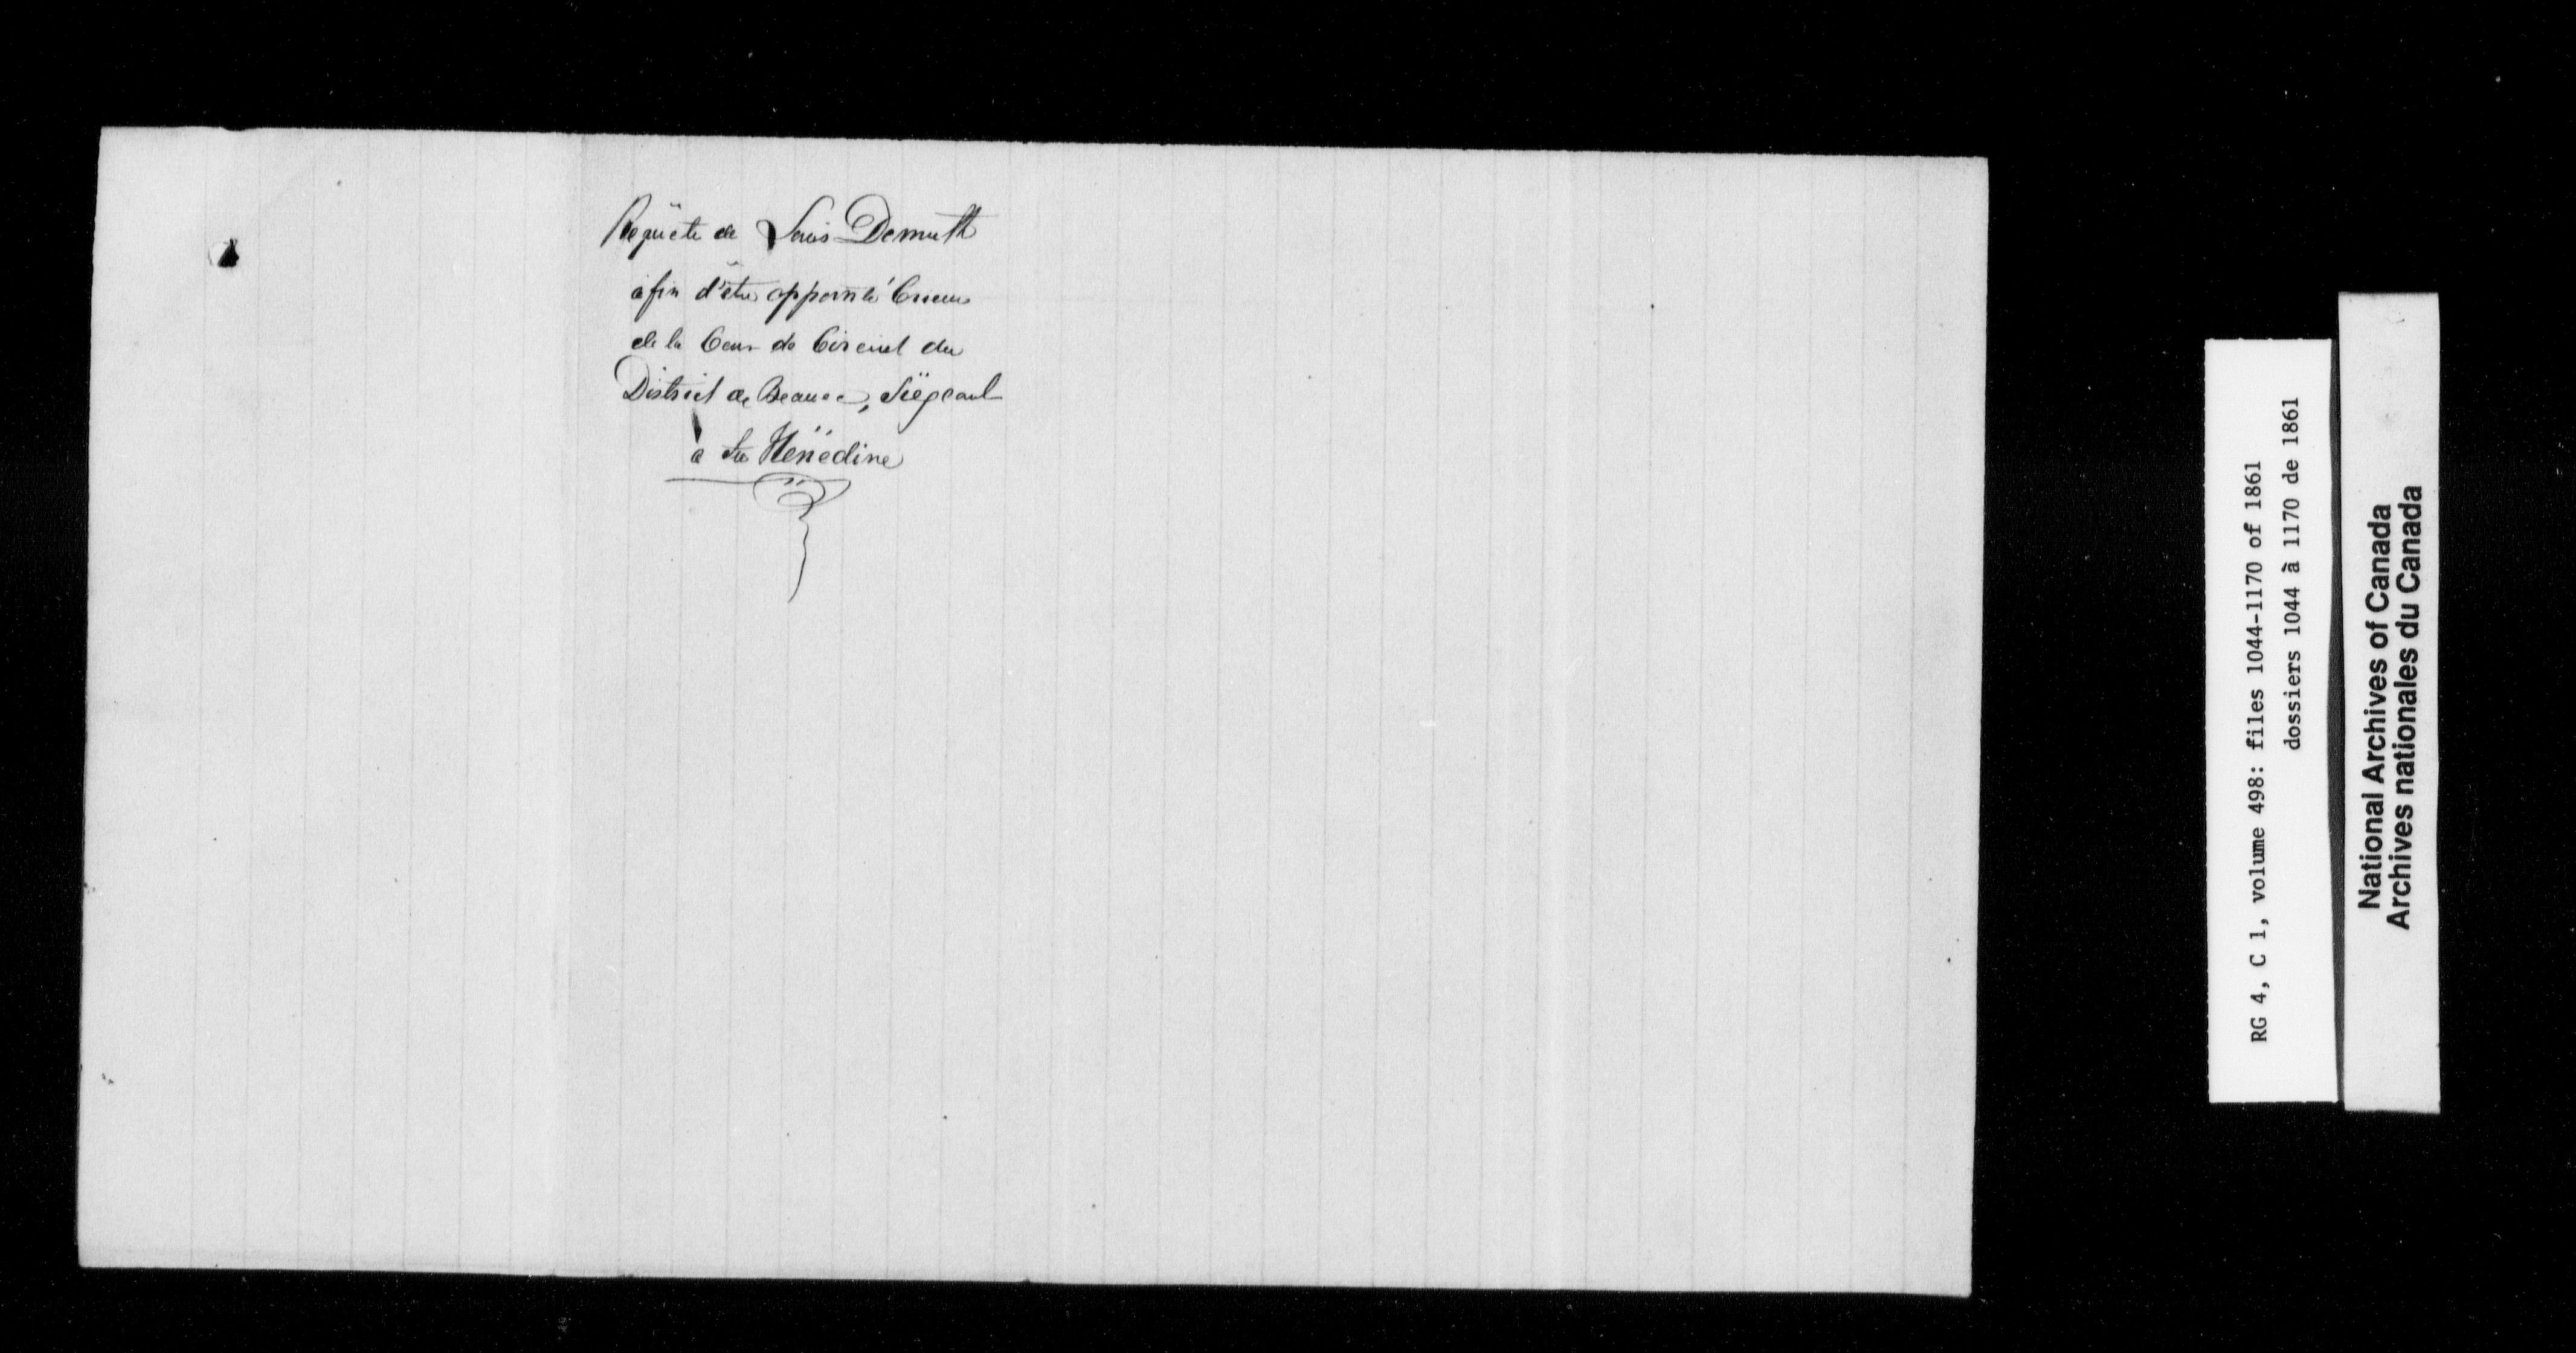 Requête de Louis Demuth
afin d'être appointé Crieur
de la Cour de Circuit du
District de Beauce, Siégeant
à Ste Hénédine
RG 4, C 1, volume 498: files 1044-1170 of 1861
dossiers 1044 à 1170 de 1861
National Archives of Canada
Archives nationales du Canada